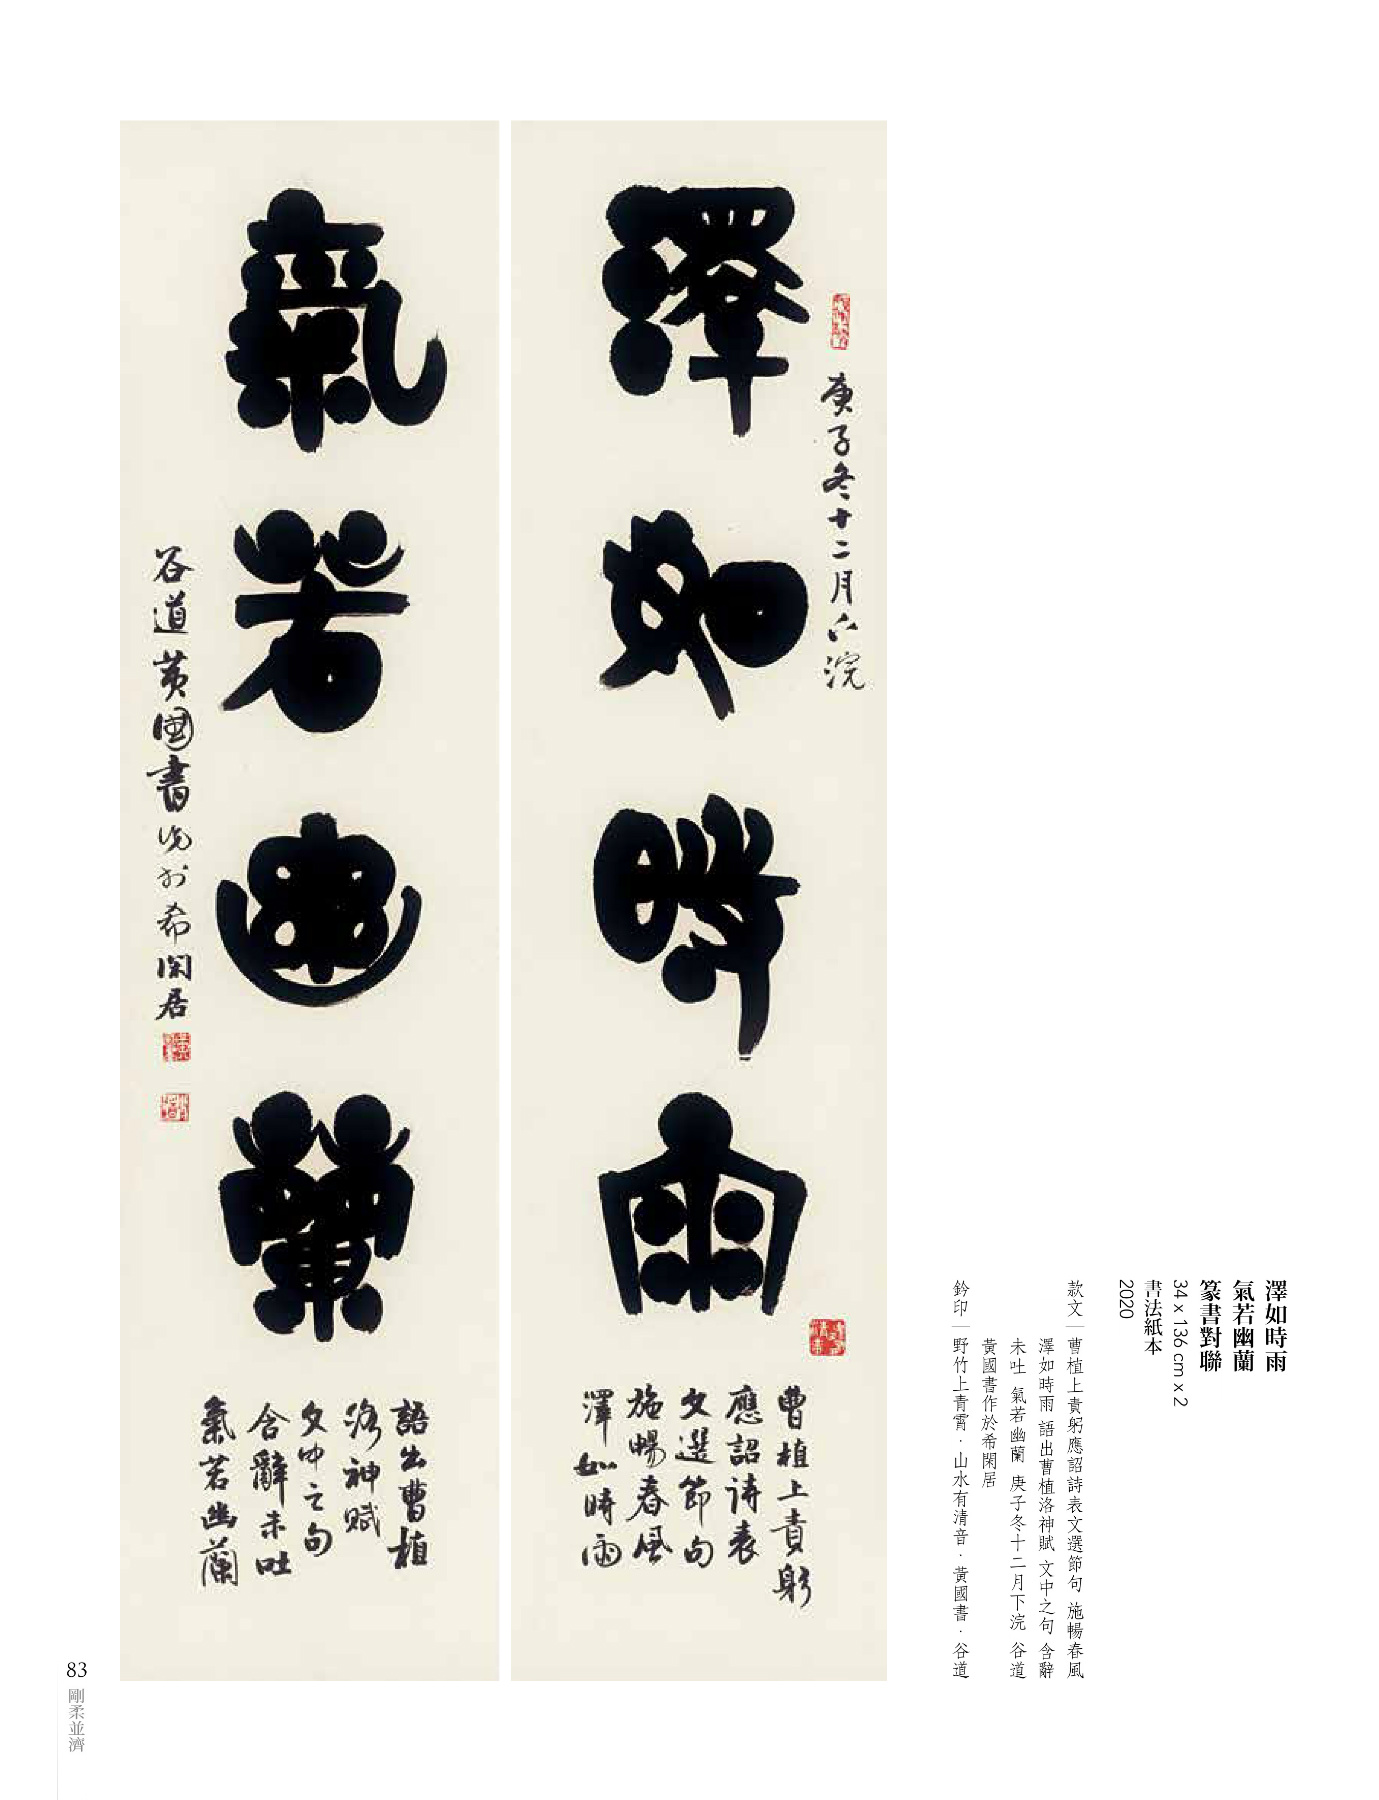 澤如時雨
庚子冬十二月下浣
曹植上責躬
應詔詩表
文選節句
施暢春風
澤如時雨
氣若幽蘭
語出曹植
洛神賦
文中之句
含辭未吐
氣若幽蘭
谷道黃國書作於希閑居
澤如時雨
氣若幽蘭
篆書對聯
34 x 136 cm x 2
書法紙本
2020
款文｜曹植上責躬應詔詩表文選節句 施暢春風
澤如時雨 語出曹植洛神賦 文中之句 含辭
未吐 氣若幽蘭 庚子冬十二月下浣 谷道
黃國書作於希閑居
鈐印｜野竹上青霄．山水有清音．黃國書．谷道
83
剛柔並濟